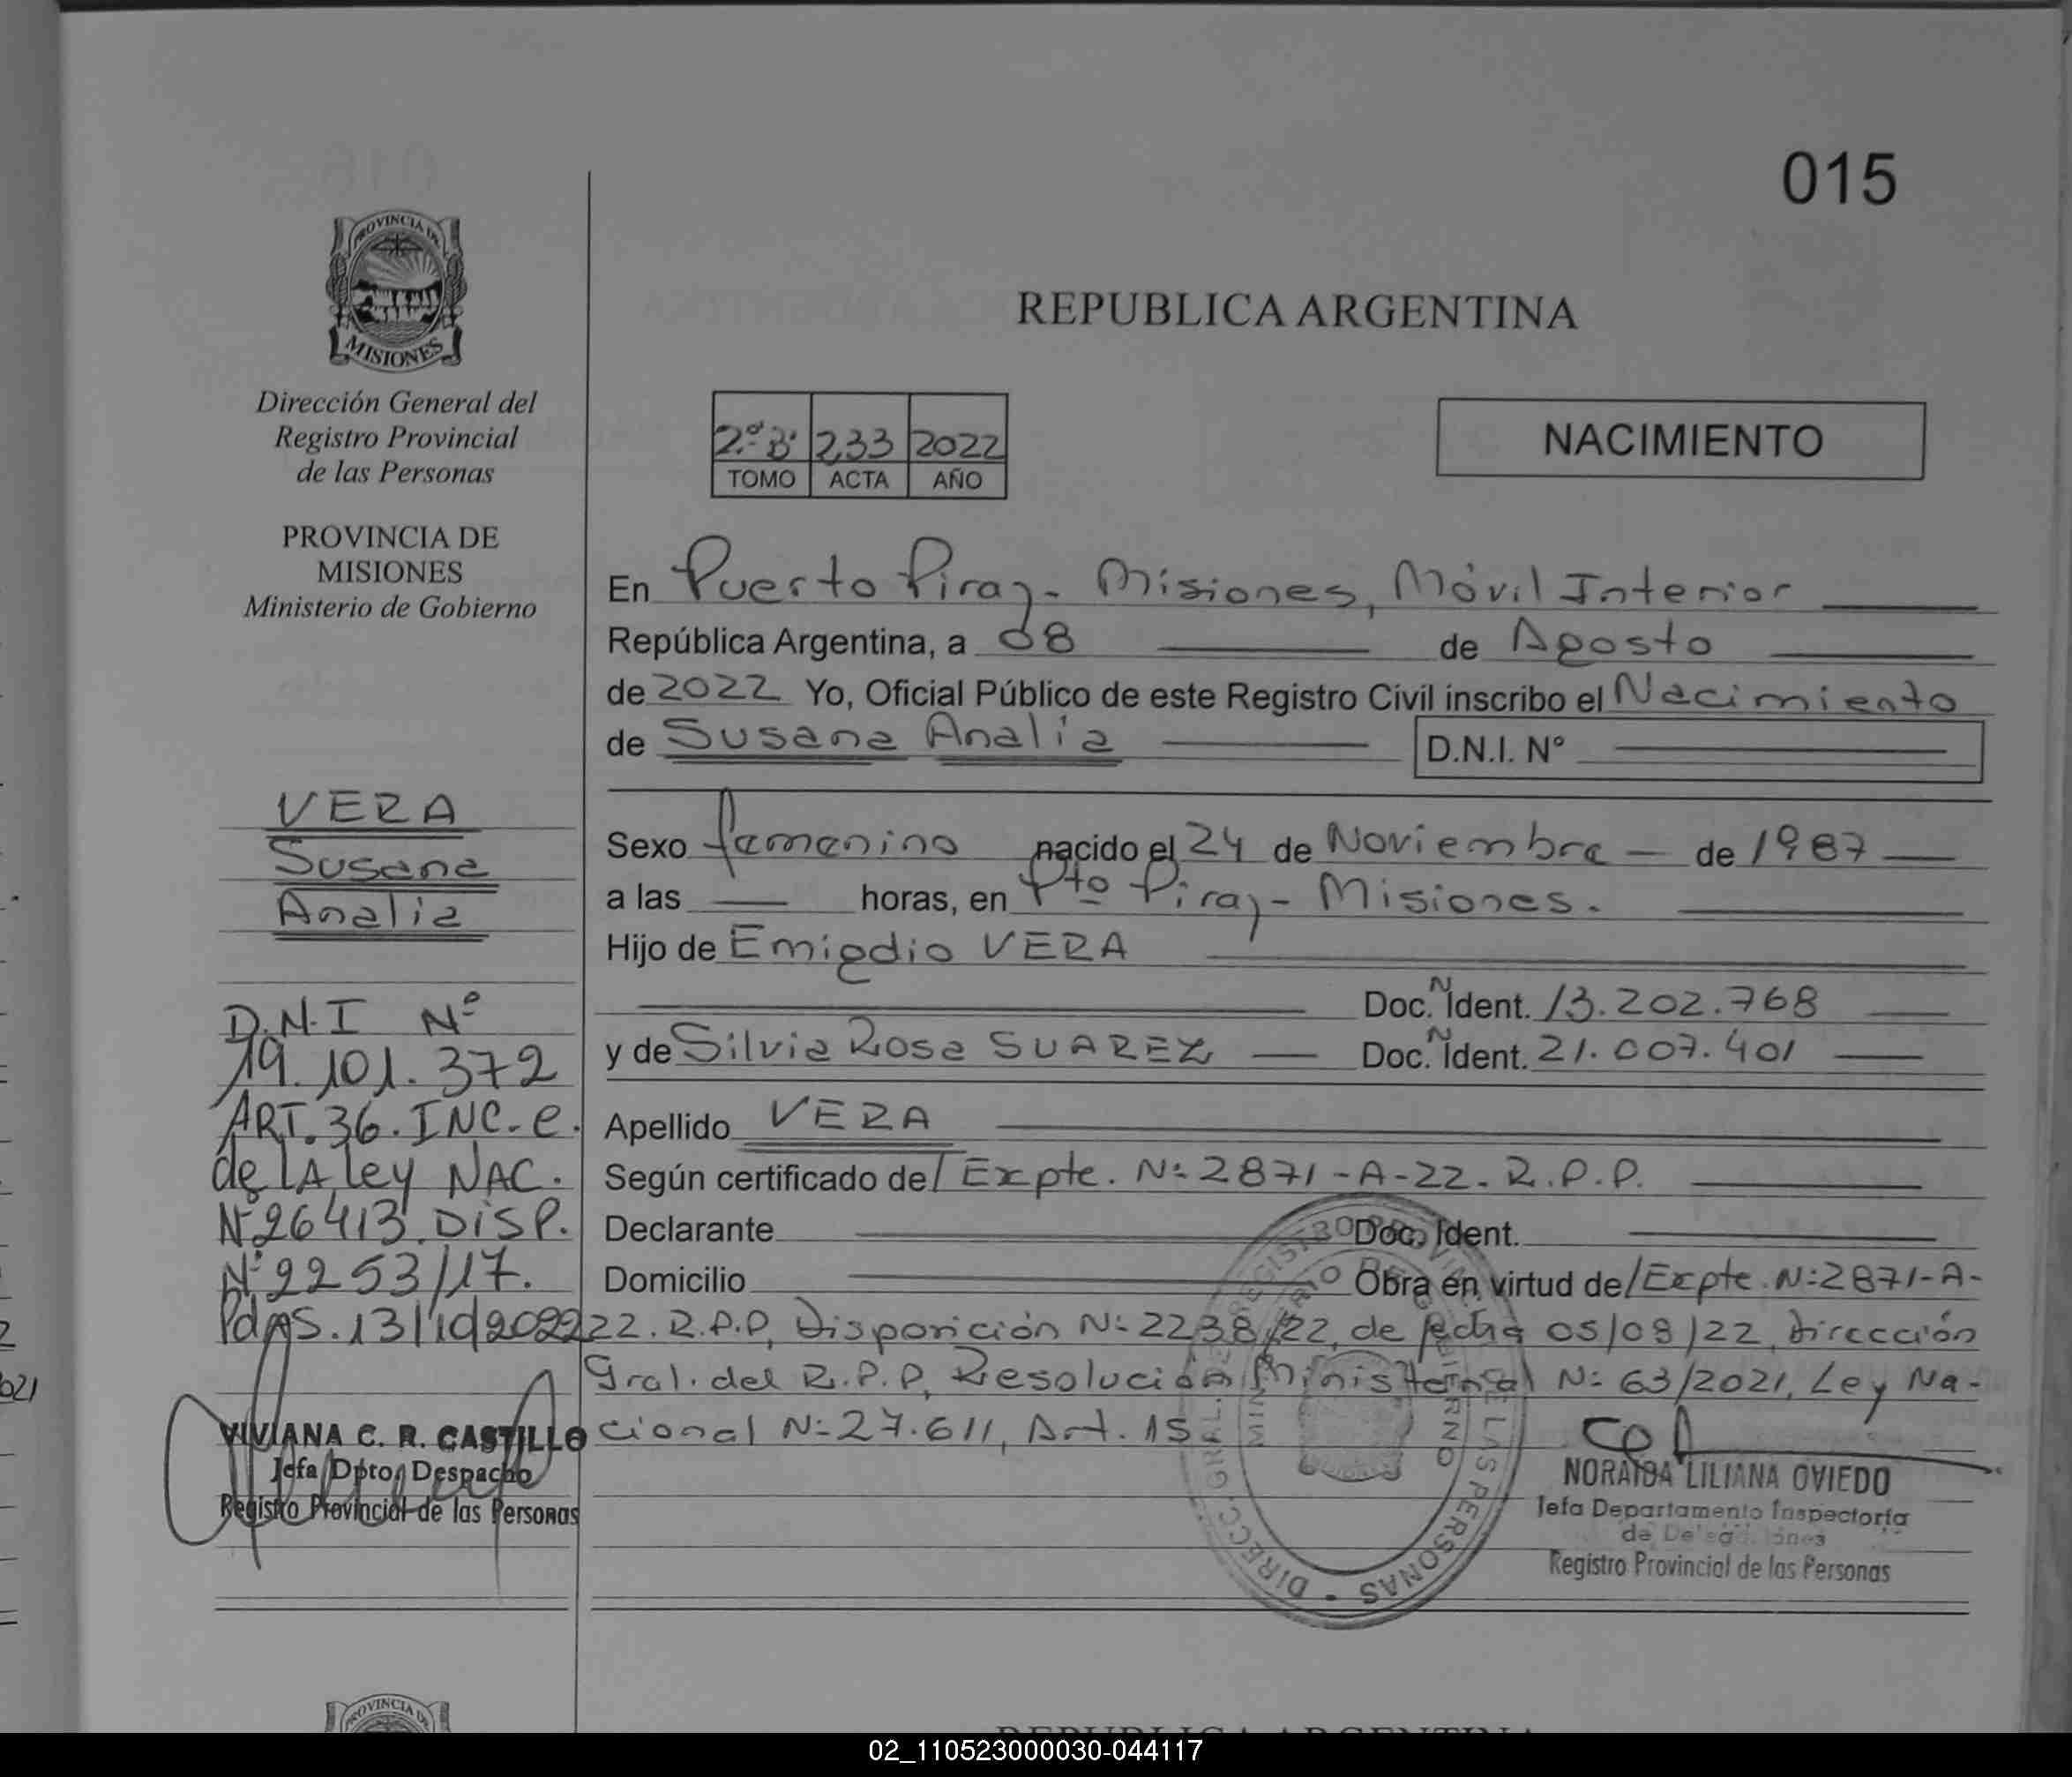 015
PROVINCIA DE
MISIONES
Dirección General del
Registro Provincial
de las Personas
PROVINCIA DE
MISIONES
Ministerio de Gobierno
VERA
Susana
Analia
D.N.I Nº
19.101.372
ART. 36. INC. e.
de LA Ley NAC.
Nº 26413 DISP.
Nº 2253/17.
PdAS. 13/10/2022
VIVIANA C. R. CASTILLO
Jefa Dpto. Despacho
Registro Provincial de las Personas
REPUBLICA ARGENTINA
2º B. 233 2022
TOMO ACTA AÑO
NACIMIENTO
En Puerto Piray - Misiones, Móvil Interior
República Argentina, a 08 de Agosto
de 2022 Yo, Oficial Público de este Registro Civil inscribo el Nacimiento
de Susana Analía D.N.I. Nº
Sexo femenino nacido el 24 de Noviembre - de 1987
a las horas, en Pto Piray - Misiones.
Hijo de Emigdio VERA
Doc. Ident. 13.202.768
y de Silvia Rosa SUAREZ Doc. Ident. 21.007.401
Apellido VERA
Según certificado de / Expte. Nº 2871-A-22. R.P.P.
Declarante Doc. Ident.
Domicilio Obra en virtud de / Expte. Nº 2871-A-
22. R.P.P, Disposición Nº 2238/22, de fecha 05/08/22, Dirección
Gral. del R.P.P, Resolución Ministerial Nº 63/2021, Ley Na-
cional Nº 27.611, Art. 15
NORAIDA LILIANA OVIEDO
Jefa Departamento Inspectoría
de Delegaciones
Registro Provincial de las Personas
02_110523000030-044117